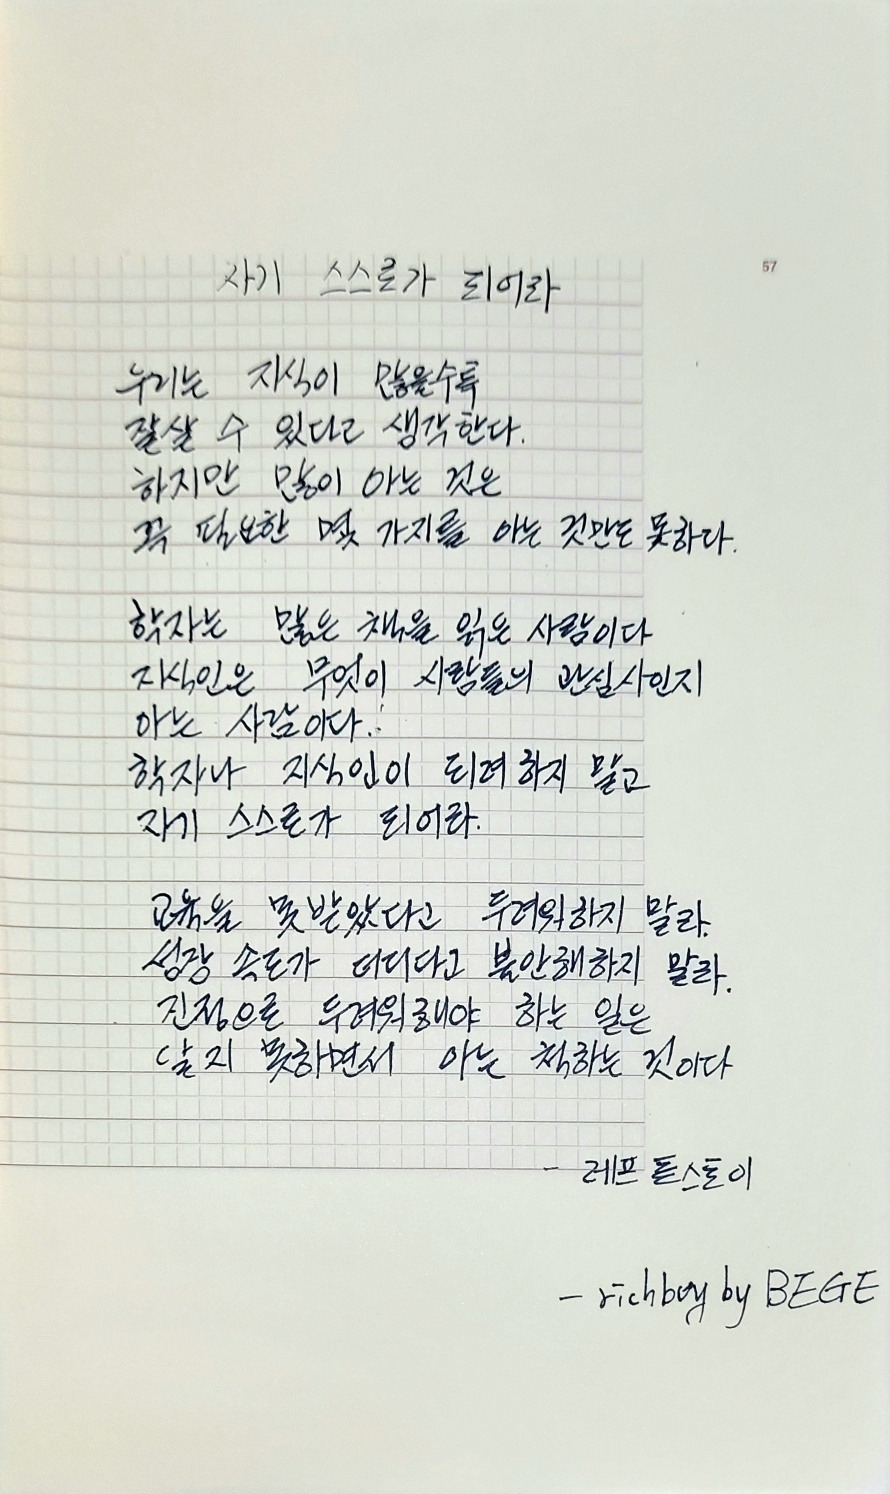 57
자기 스스로가 되어라
우리는 지식이 많을수록
잘살 수 있다고 생각한다.
하지만 많이 아는 것은
꼭 필요한 몇 가지를 아는 것만도 못하다.
학자는 많은 책을 읽은 사람이다
지식인은 무엇이 사람들의 관심사인지
아는 사람이다.
학자나 지식인이 되려 하지 말고
자기 스스로가 되어라.
교육을 못 받았다고 두려워하지 말라.
성장 속도가 더디다고 불안해하지 말라.
진정으로 두려워해야 하는 일은
알지 못하면서 아는 척하는 것이다
- 레프 톨스토이
- richboy by BEGE